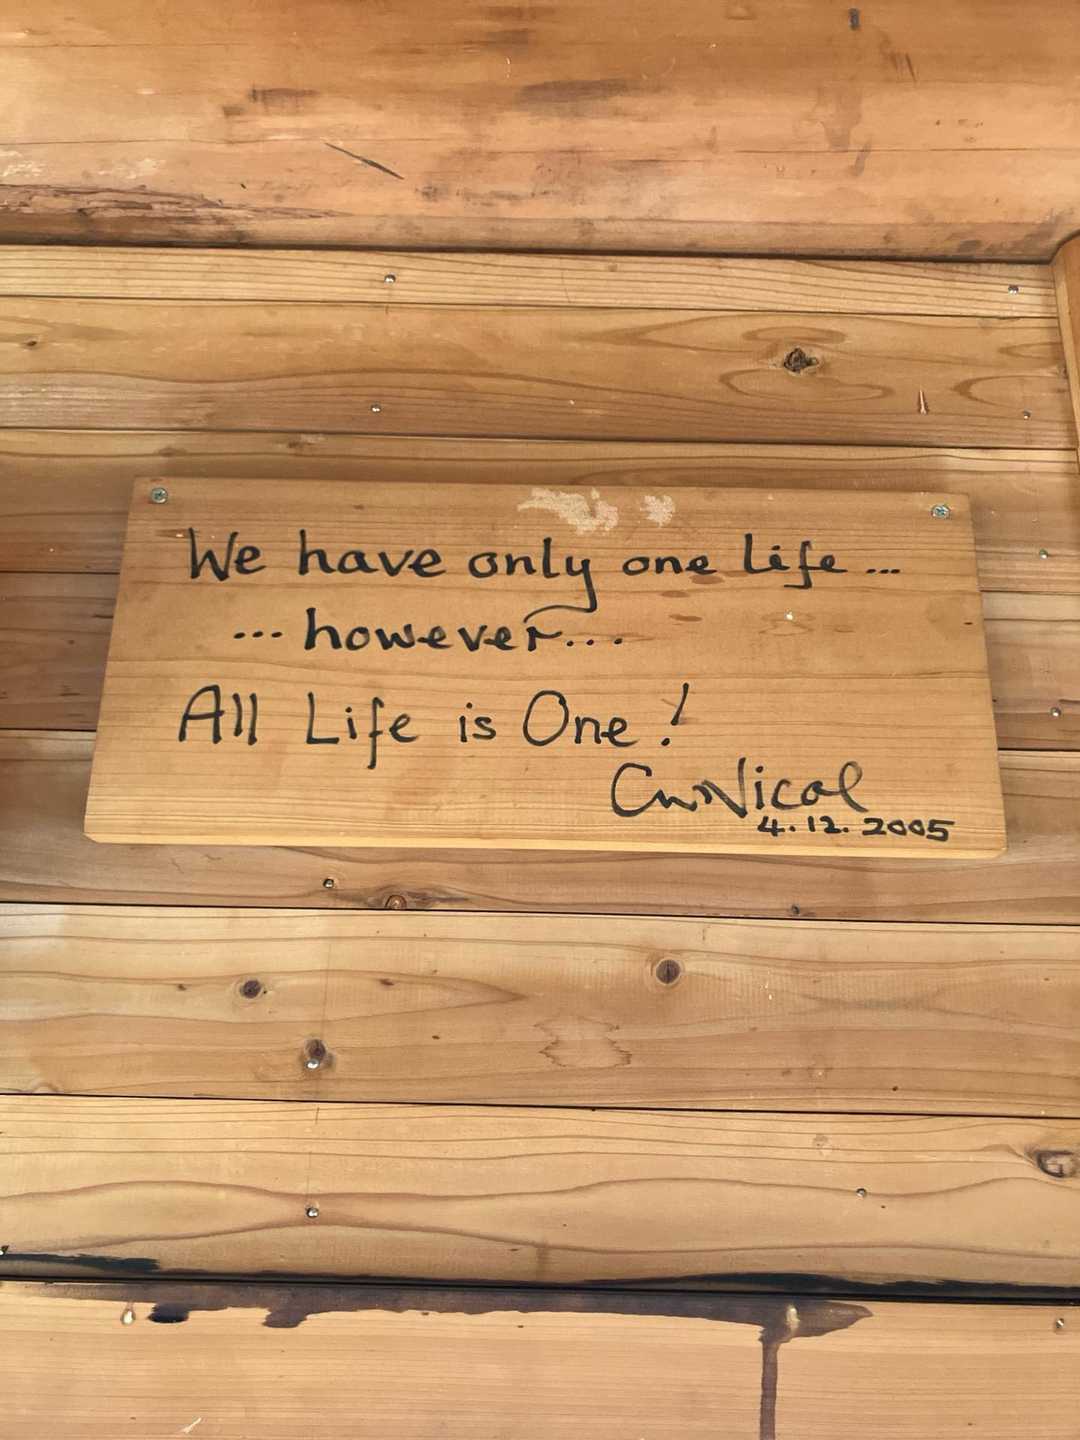 We have only one life ...
... however...
All Life is One!
CW Nicol
4.12.2005